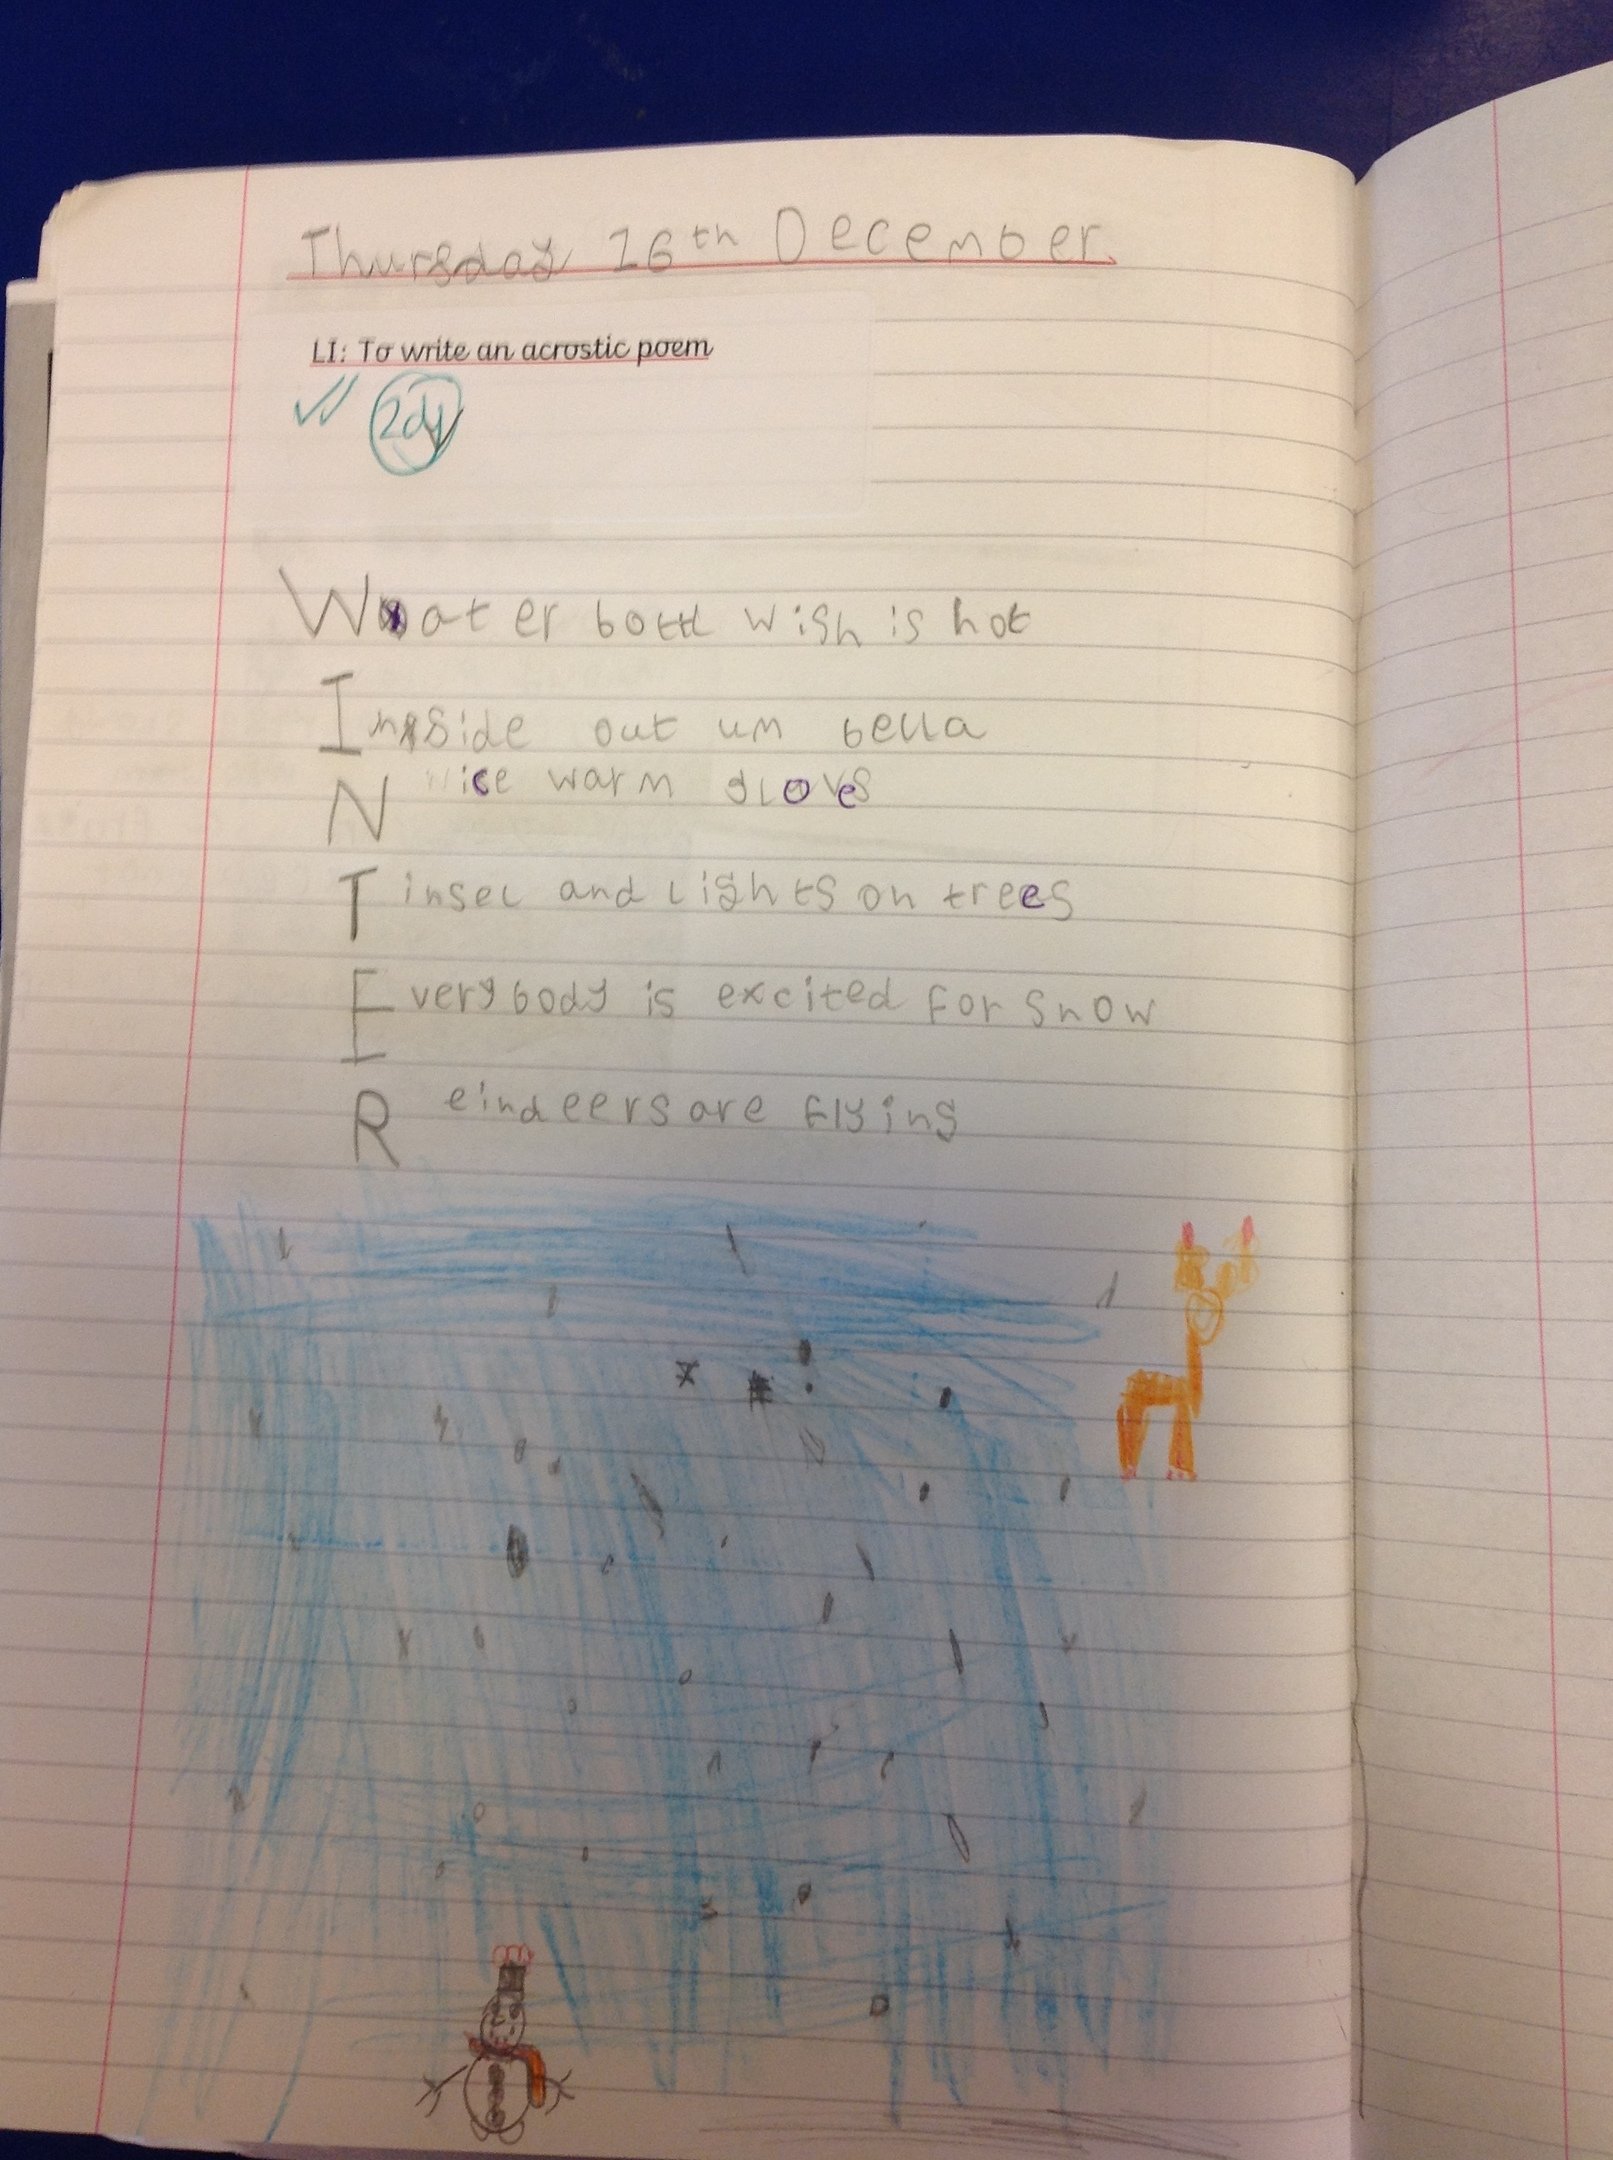 Thursday 16th December.
LI: To write an acrostic poem
Water bottl wish is hot
Inside out um bella
Nice warm gloves
Tinsel and lights on trees
Everybody is excited for snow
Reindeers are flying